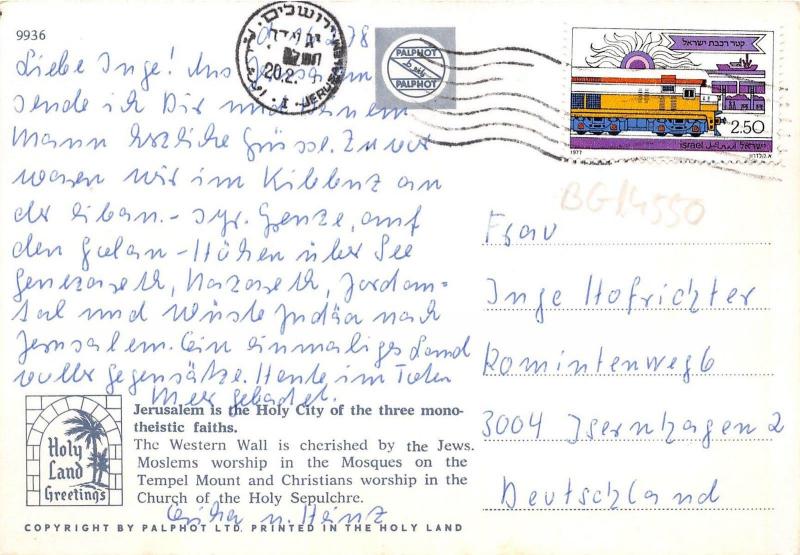 9936
78
PALPHOT
ירושלים
20.2.
JERUSALEM
קטר רכבת ישראל
2.50
ישראל اسرائيل israel
1977
Liebe Inge! Aus Jerusalem
sende ich Dir und Deinem
Mann herzliche Grüsse. Zuvor
waren wir im Kibbuz an
der liban.- syr. Grenze, auf
den Golan-Höhen über See
Genezareth, Nazareth, Jordan-
tal und Wüste Judäa nach
Jerusalem. Ein einmaliges Land
voller Gegensätze. Heute im Toten
Meer gebadet.
u. Heinz
BG14550
Frau
Inge Hofrichter
Romintenweg 6
3004 Isernhagen 2
Deutschland
Holy
Land
Greetings
Jerusalem is the Holy City of the three mono-
theistic faiths.
The Western Wall is cherished by the Jews.
Moslems worship in the Mosques on the
Tempel Mount and Christians worship in the
Church of the Holy Sepulchre.
COPYRIGHT BY PALPHOT LTD. PRINTED IN THE HOLY LAND